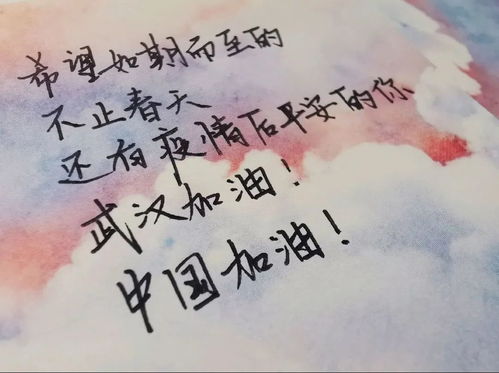 希望如期而至的
不止春天
还有疫情后平安的你
武汉加油！
中国加油！